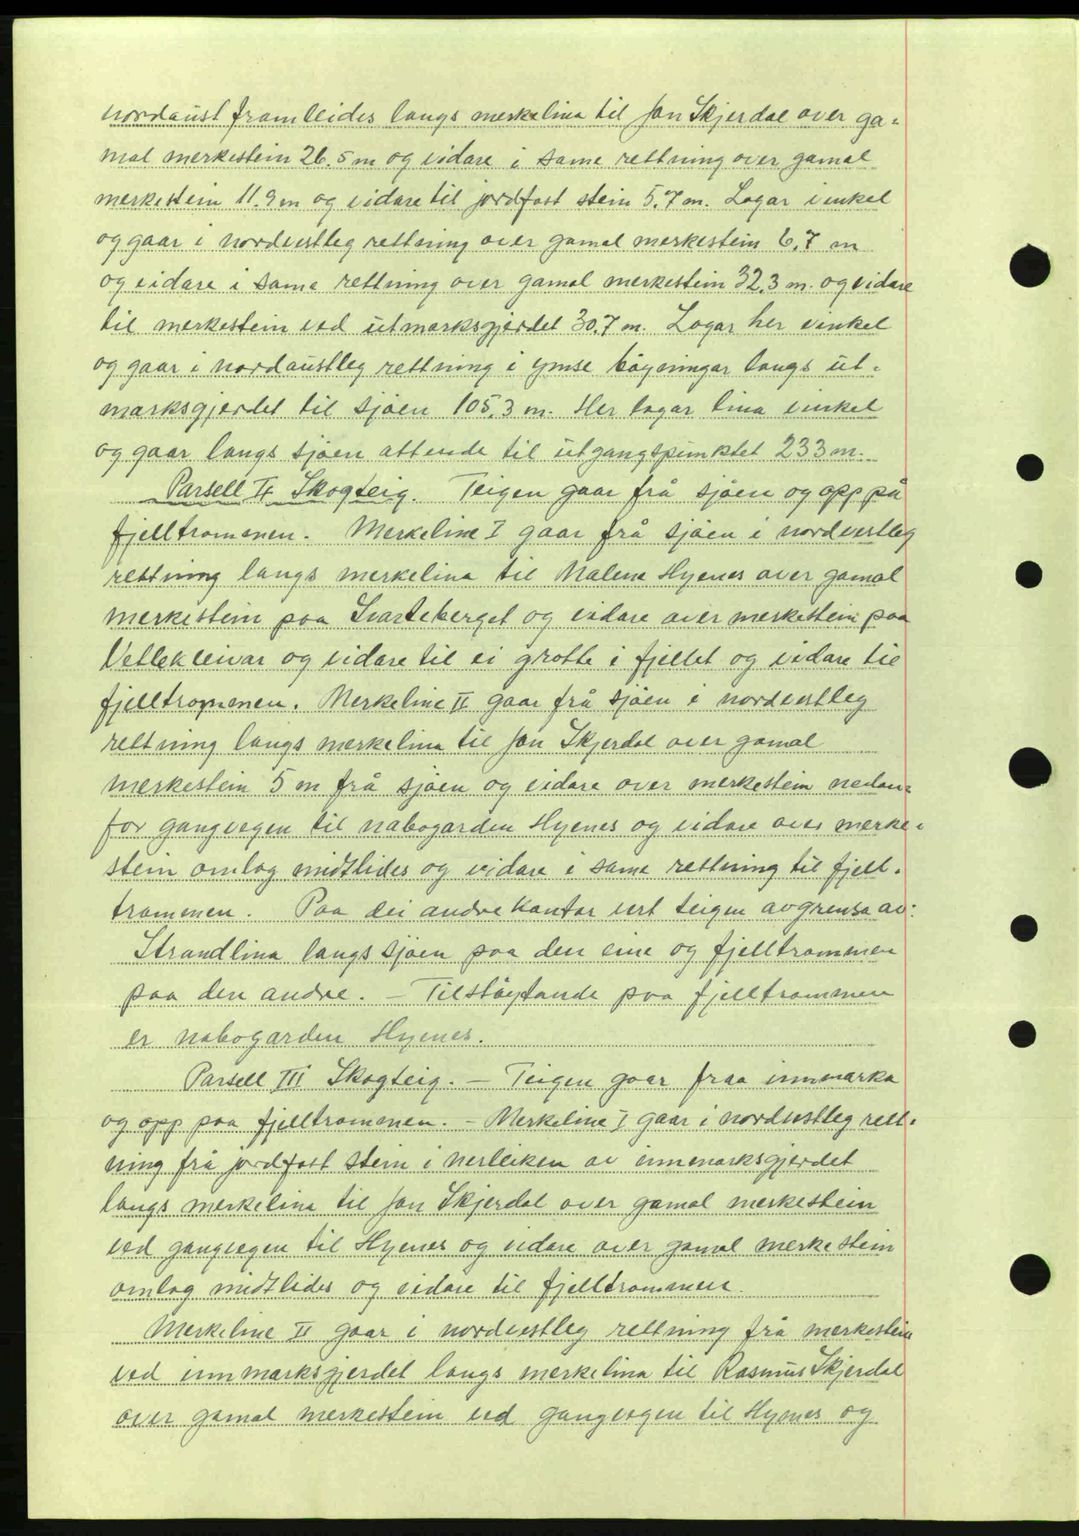 nordaust framleides langs merkelina til Jon Skjerdal over ga-
mal merkestein 26.5 m og vidare i same rettning over gamal
merkestein 11.9 m og vidare til jordfast stein 5.7 m. Lagar vinkel
og gaar i nordvestleg rettning over gamal merkestein 6.7 m
og vidare i sama rettning over gamal merkestein 32.3 m. og vidare
til merkestein ved utmarksgjerdet 30.7 m. Lagar her vinkel
og gaar i nordaustleg rettning i ymse bøyningar langs ut-
marksgjerdet til sjøen 105.3 m. Her lagar lina vinkel
og gaar langs sjøen attende til utgangspunktet 233 m.
Parsell II Skogteig. Teigen gaar frå sjøen og opp på
fjelltrommen. Merkeline I gaar frå sjøen i nordvestleg
rettning langs merkelina til Malene Hyenes over gamal
merkestein paa Svarteberget og vidare over merkestein paa
Vetlekleivar og vidare til ei grotte i fjellet og vidare til
fjelltrommen. Merkeline II gaar frå sjøen i nordvestleg
rettning langs merkelina til Jon Skjerdal over gamal
merkestein 5 m frå sjøen og vidare over merkestein nedan-
for gangvegen til nabogarden Hyenes og vidare over merke-
stein omlag midtlides og vidare i same rettning til fjell-
trammen. Paa dei andre kantar vert teigen avgrensa av:
Strandlina langs sjøen paa den eine og fjelltrammen
paa den andre. - Tilstøytande paa fjelltrammen
er nabogarden Hyenes.
Parsell III Skogteig. - Teigen gaar fraa innmarka
og opp paa fjelltrammen. - Merkeline I gaar i nordvestleg rett-
ning frå jordfast stein i nerleiken av innmarksgjerdet
langs merkelina til Jon Skjerdal over gamal merkestein
ved gangvegen til Hyenes og vidare over gamal merkestein
omlag midtlides og vidare til fjelltrammen.
Merkeline II gaar i nordvestleg rettning frå merkestein
ved innmarksgjerdet langs merkelina til Rasmus Skjerdal
over gamal merkestein ved gangvegen til Hyenes og